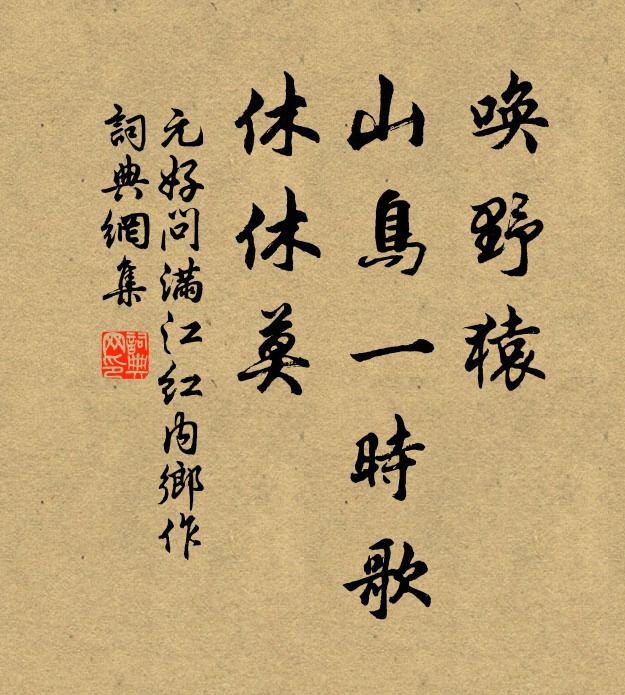 唤野猿
山鳥一時歌
休休莫
元好问满江红内鄉作
詞典網集
詞典
网印